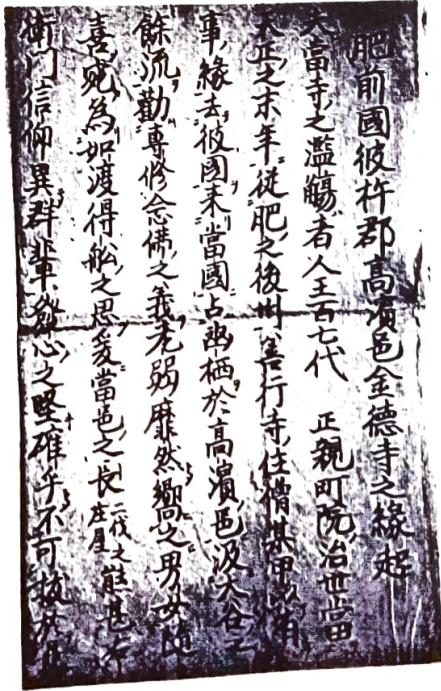 肥前國彼杵郡高濱邑金德寺之緣起
夫當寺之濫觴者人王百七代 正親町院治世當
天正之末年從肥之後州善行寺住僧某甲有
事緣去彼國來當國占幽栖於高濱邑汲大谷之
餘流勸專修念佛之義老弱靡然嚮之男女随
喜宛為如渡得舩之思爰當邑之長二代之庄屋甚
衛門信仰異群輩發心之堅確乎不可拔